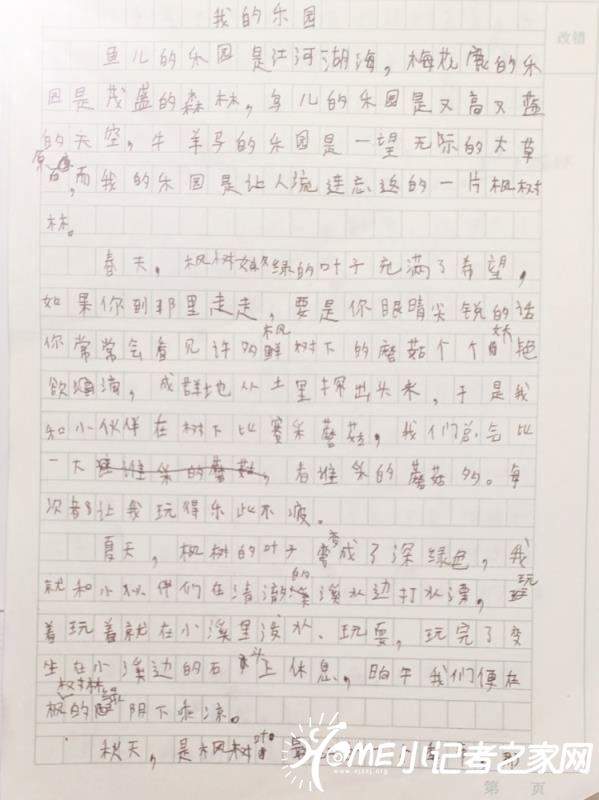 我的乐园
改错
鱼儿的乐园是江河湖海，梅花鹿的乐
园是茂盛的森林，鸟儿的乐园是又高又蓝
的天空，牛羊马的乐园是一望无际的大草
原，而我的乐园是让人流连忘返的一片枫树
林。
春天，枫树嫩绿的叶子充满了希望，
如果你到那里走走，要是你眼睛尖锐的话
你常常会看见许多枫树下的蘑菇个个娇艳
欲滴，成群地从土里探出头来，于是我
和小伙伴在树下比赛采蘑菇，我们总会比
一大 看谁采的蘑菇多。每
次都让我玩得乐此不疲。
夏天，枫树的叶子变成了深绿色，我
就和小伙伴们在清澈的溪水边打水漂，玩
着玩着就在小溪里泼水、玩耍，玩完了变
坐在小溪边的石头上休息，晌午我们便在
枫树林的绿阴下乖凉。
秋天，是枫树叶
小记者之家网
www.xjzzj.com
第 页